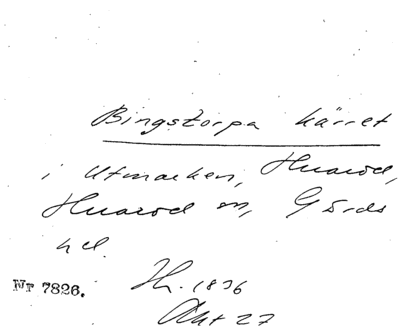 Bingstorpa kärret
i Utmarken, Huaröd,
Huaröd sn, Gärds
hd.
Nr 7826.
Jh. 1836
Akt 27